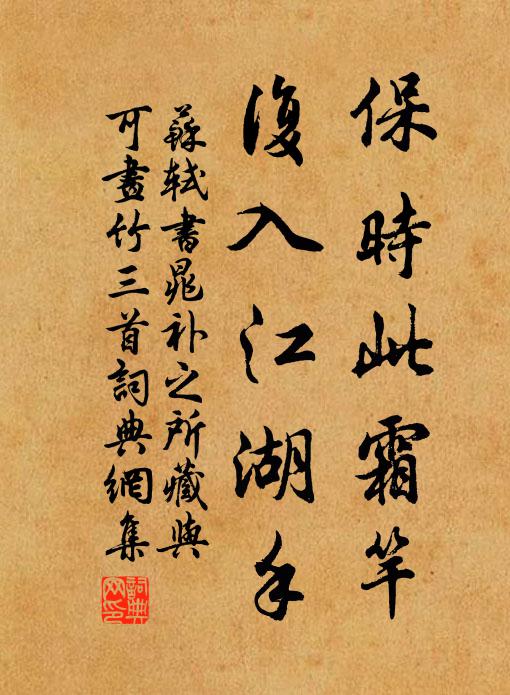 保時此霜竿
復入江湖手
蘇軾書晁補之所藏與
可畫竹三首詞典網集
詞典網印